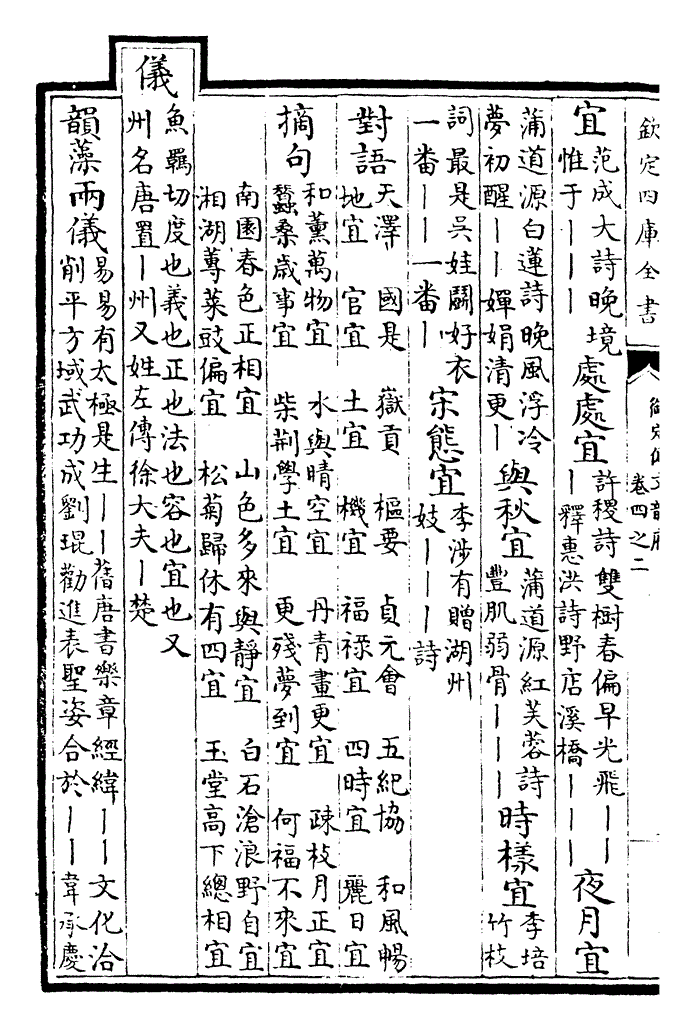 欽定四庫全書
御定佩文韻府
卷四之二
宜
范成大詩晚境
惟于丨丨丨
處處宜
許稷詩雙樹春偏早光飛丨丨
丨釋惠洪詩野店溪橋丨丨丨
夜月宜
蒲道源白蓮詩晚風浮冷
夢初醒丨丨嬋娟清更丨
與秋宜
蒲道源紅芙蓉詩
豐肌弱骨丨丨丨
時樣宜
李培
竹枝
詞最是吳娃鬭好衣
一番丨丨一番丨
宋態宜
李涉有贈湖州
妓丨丨丨詩
對語
天澤　國是　嶽貢　樞要　貞元會　五紀協　和風暢
地宜　官宜　土宜　機宜　福禄宜　四時宜　麗日宜
摘句
和薰萬物宜　水與晴空宜　丹青畫更宜　疎枝月正宜
蠶桑歳事宜　柴荆學土宜　更殘夢到宜　何福不來宜
南園春色正相宜　山色多來與靜宜　白石滄浪野自宜
湘湖蓴菜豉偏宜　松菊歸休有四宜　玉堂高下總相宜
儀
魚羈切度也義也正也法也容也宜也又
州名唐置丨州又姓左傳徐大夫丨楚
韻藻兩儀
易易有太極是生丨丨舊唐書樂章經緯丨丨文化洽
削平方域武功成劉琨勸進表聖姿合於丨丨韋承慶